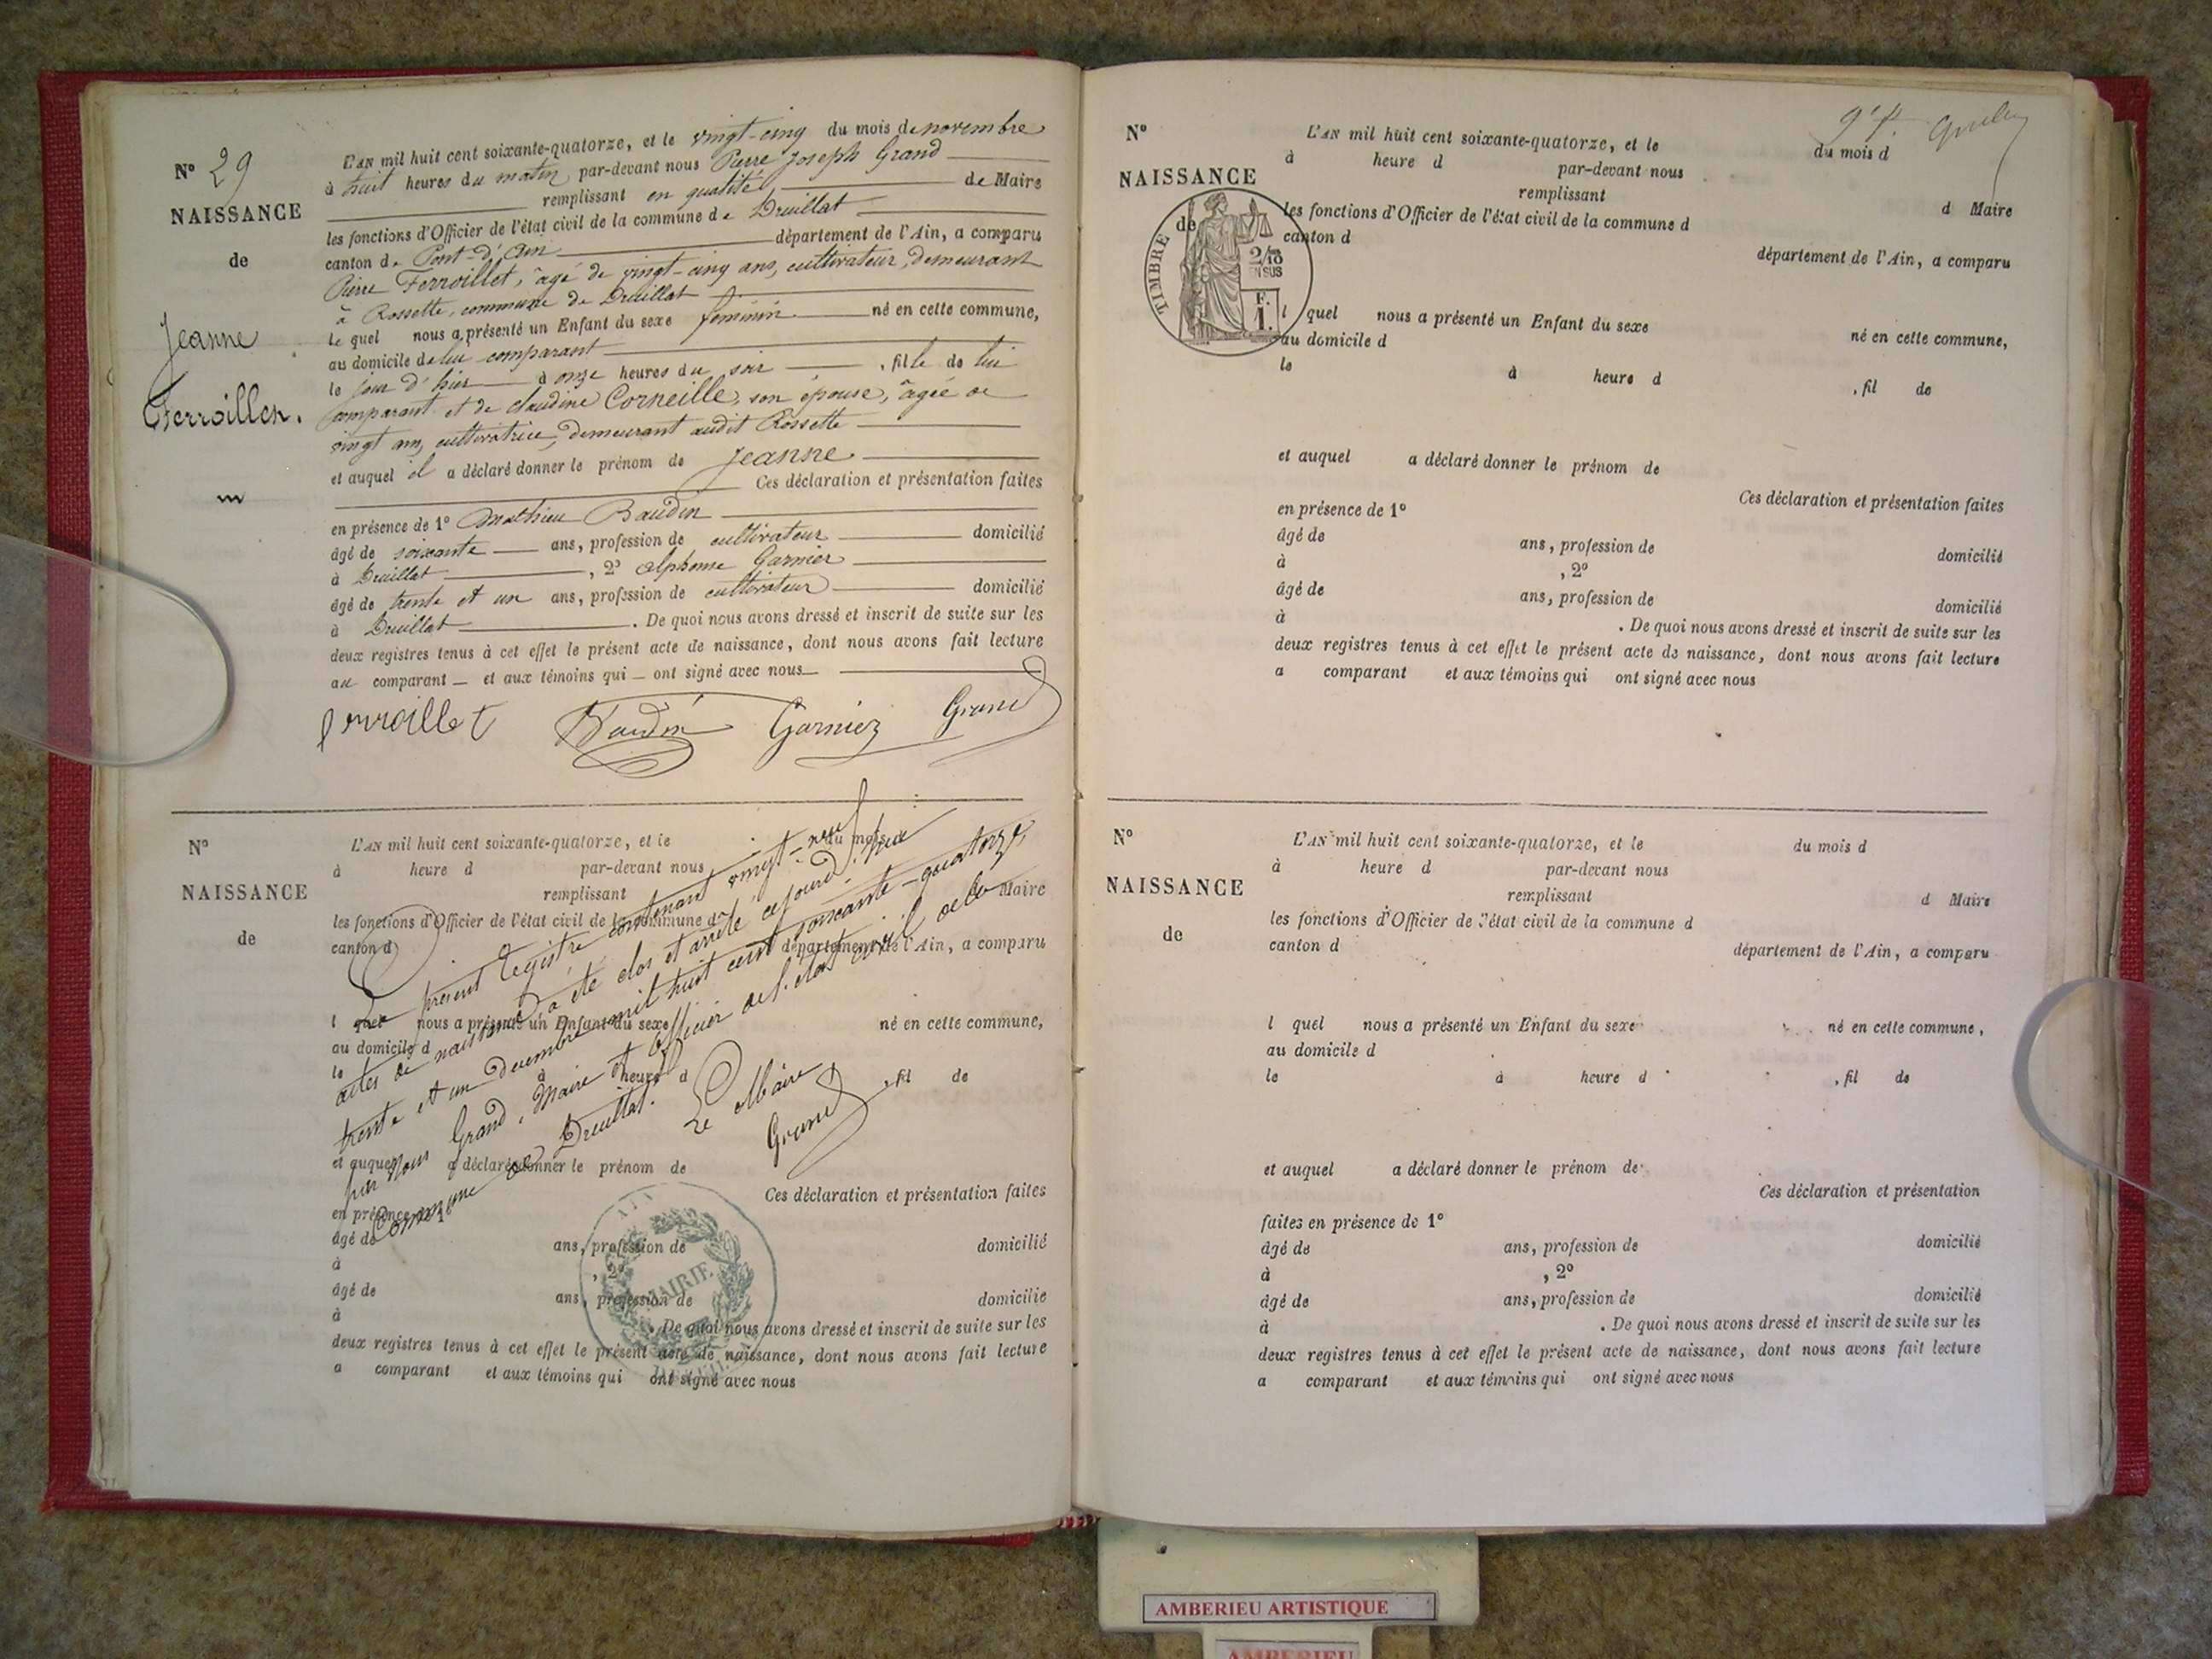 N° 29
NAISSANCE
de
Jeanne
Ferroillet.
L'AN mil huit cent soixante-quatorze, et le vingt-cinq du mois de novembre
à huit heures du matin par-devant nous Pierre Joseph Grand
remplissant en qualité de Maire
les fonctions d'Officier de l'état civil de la commune de Druillat
canton de Pont-d'Ain département de l'Ain, a comparu
Pierre Ferroillet, âgé de vingt-cinq ans, cultivateur, demeurant
à Rossette, commune de Druillat
le quel nous a présenté un Enfant du sexe féminin né en cette commune,
au domicile de lui comparant
le jour d'hier à onze heures du soir , fille de lui
comparant et de Claudine Corneille, son épouse, âgée de
vingt ans, cultivatrice, demeurant audit Rossette
et auquel il a déclaré donner le prénom de Jeanne
Ces déclaration et présentation faites
en présence de 1° Mathieu Baudin
âgé de soixante ans, profession de cultivateur domicilié
à Druillat , 2° Alphonse Garnier
âgé de trente et un ans, profession de cultivateur domicilié
à Druillat . De quoi nous avons dressé et inscrit de suite sur les
deux registres tenus à cet effet le présent acte de naissance, dont nous avons fait lecture
au comparant et aux témoins qui ont signé avec nous
ferroillet Baudin Garnier Grand
N°
NAISSANCE
de
L'AN mil huit cent soixante-quatorze, et le du mois
à heure d par-devant nous
remplissant Maire
les fonctions d'Officier de l'état civil de la commune d
canton d département de l'Ain, a comparu
l quel nous a présenté un Enfant du sexe né en cette commune,
au domicile d
le à heure d , fil de
et auquel a déclaré donner le prénom de
Ces déclaration et présentation faites
en présence de 1°
âgé de ans, profession de domicilié
à , 2°
âgé de ans, profession de domicilié
à . De quoi nous avons dressé et inscrit de suite sur les
deux registres tenus à cet effet le présent acte de naissance, dont nous avons fait lecture
a comparant et aux témoins qui ont signé avec nous
Le présent Registre contenant vingt-neuf
actes de naissance a été clos et arrêté ce jourd'hui
trente et un Décembre mil huit cent soixante-quatorze,
par Nous Grand, Maire et officier de l'état civil de la
Commune de Druillat.
Le Maire
Grand
MAIRIE
N°
NAISSANCE
de
TIMBRE
2/10
EN SUS
F.
1.
L'AN mil huit cent soixante-quatorze, et le du mois d
à heure d par-devant nous
remplissant d Maire
les fonctions d'Officier de l'état civil de la commune d
canton d département de l'Ain, a comparu
l quel nous a présenté un Enfant du sexe né en cette commune,
au domicile d
le à heure d , fil de
et auquel a déclaré donner le prénom de
Ces déclaration et présentation faites
en présence de 1°
âgé de ans, profession de domicilié
à , 2°
âgé de ans, profession de domicilié
à . De quoi nous avons dressé et inscrit de suite sur les
deux registres tenus à cet effet le présent acte de naissance, dont nous avons fait lecture
a comparant et aux témoins qui ont signé avec nous
N°
NAISSANCE
de
L'AN mil huit cent soixante-quatorze, et le du mois d
à heure d par-devant nous
remplissant d Maire
les fonctions d'Officier de l'état civil de la commune d
canton d département de l'Ain, a comparu
l quel nous a présenté un Enfant du sexe né en cette commune,
au domicile d
le à heure d , fil de
et auquel a déclaré donner le prénom de
Ces déclaration et présentation
faites en présence de 1°
âgé de ans, profession de domicilié
à , 2°
âgé de ans, profession de domicilié
à . De quoi nous avons dressé et inscrit de suite sur les
deux registres tenus à cet effet le présent acte de naissance, dont nous avons fait lecture
a comparant et aux témoins qui ont signé avec nous
AMBERIEU ARTISTIQUE
AMBERIEU